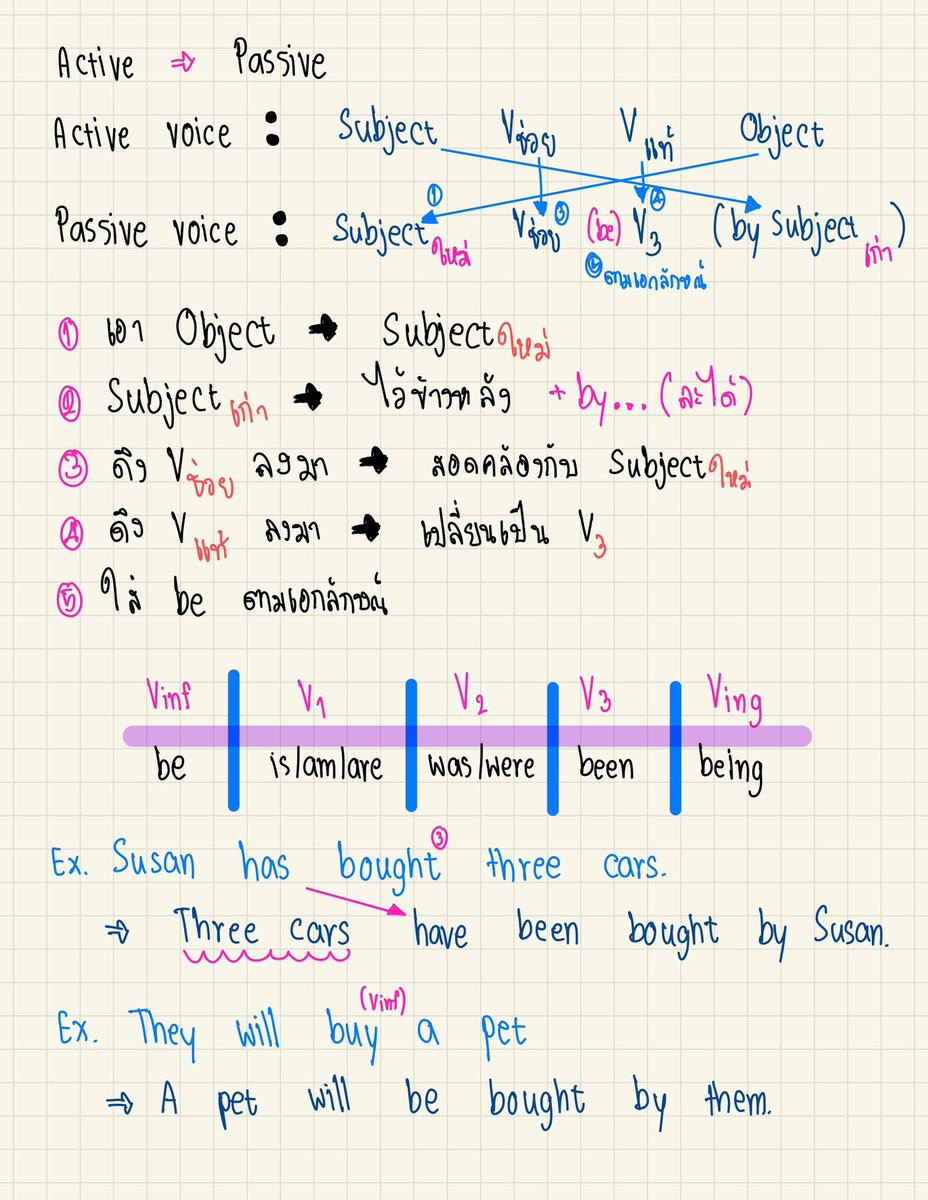 Active ⇒ Passive
Active voice : Subject Vช่วย Vแท้ Object
Passive voice : ① Subjectใหม่ Vช่วย③ (be) V3④ (by Subjectเก่า)
⑤ตามเอกลักษณ์
① เอา Object → Subjectใหม่
② Subjectเก่า → ไว้ข้างหลัง + by... (ละได้)
③ ดึง Vช่วย ลงมา → สอดคล้องกับ Subjectใหม่
④ ดึง Vแท้ ลงมา → เปลี่ยนเป็น V3
⑤ ใส่ be ตามเอกลักษณ์
Vinf V1 V2 V3 Ving
be is/am/are was/were been being
Ex. Susan has bought③ three cars.
⇒ Three cars have been bought by Susan.
(Vinf)
Ex. They will buy a pet
⇒ A pet will be bought by them.